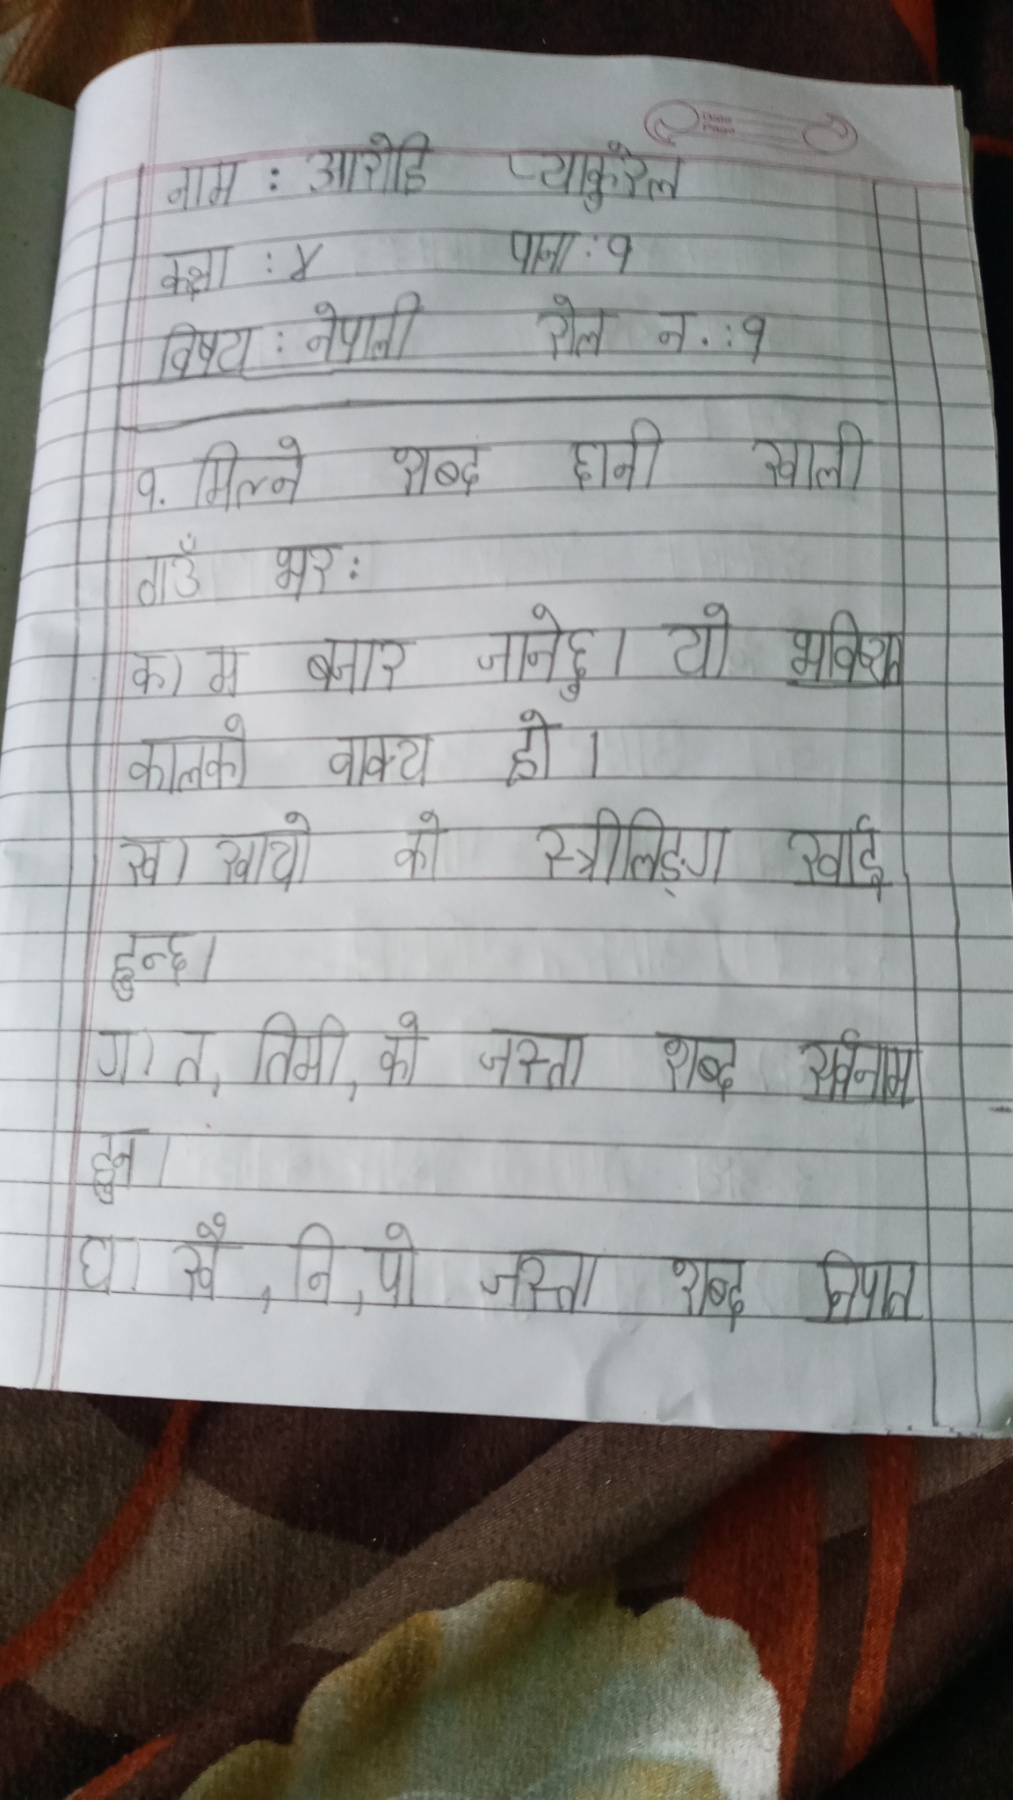 नाम : आरोहि प्याकुरेल
कक्षा : ४ पाना : १
विषय : नेपाली रोल न. : १
१. मिल्ने शब्द छानी खाली
ठाउँ भर :
क) म बजार जानेछु। यो भविष्यत
कालको वाक्य हो ।
ख) खायो को स्त्रीलिङ्ग खाई
हुन्छ।
ग) त, तिमी, को जस्ता शब्द सर्वनाम
हुन ।
घ) खै , नि , पो जस्ता शब्द निपात